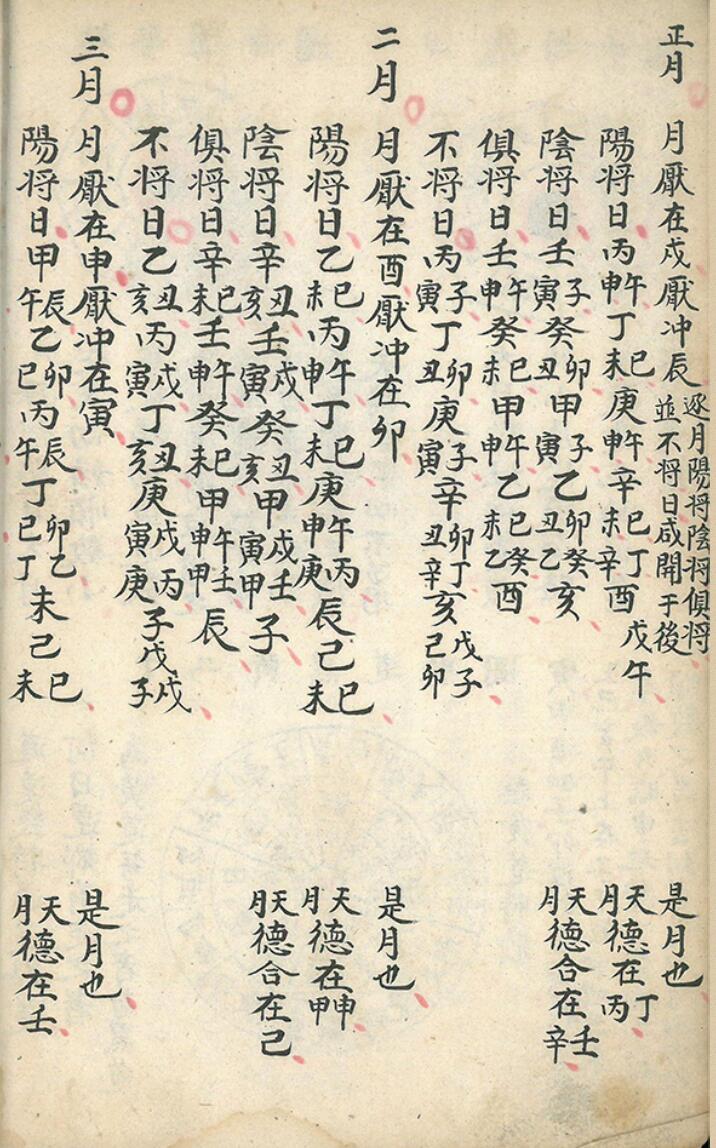 正月　月厭在戌厭冲辰逐月陽将陰将俱将並不将日咸開于後　是月也
陽将日丙午申丁巳未庚午申辛巳未丁辛酉戊午　天月德在丁丙
陰将日壬子寅癸卯丑甲子寅乙卯丑癸乙亥　天月德合在壬辛
俱将日壬午申癸巳未甲午申乙巳未癸乙酉
不将日丙子寅丁卯丑庚子寅辛卯丑丁辛亥戊子己卯
二月　月厭在酉厭冲在卯　是月也
陽将日乙巳未丙午申丁巳未庚午申丙庚辰己巳未　天月德在申甲
陰将日辛丑亥壬戌寅癸丑亥甲戌寅壬甲子　天月德合在己
俱将日辛巳未壬午申癸巳未甲午申壬甲辰
不将日乙丑亥丙戌寅丁丑亥庚戌寅丙庚子戊戌子
三月　月厭在申厭冲在寅　是月也
陽将日甲辰午乙卯巳丙辰午丁卯巳乙丁未己巳未　天月德在壬